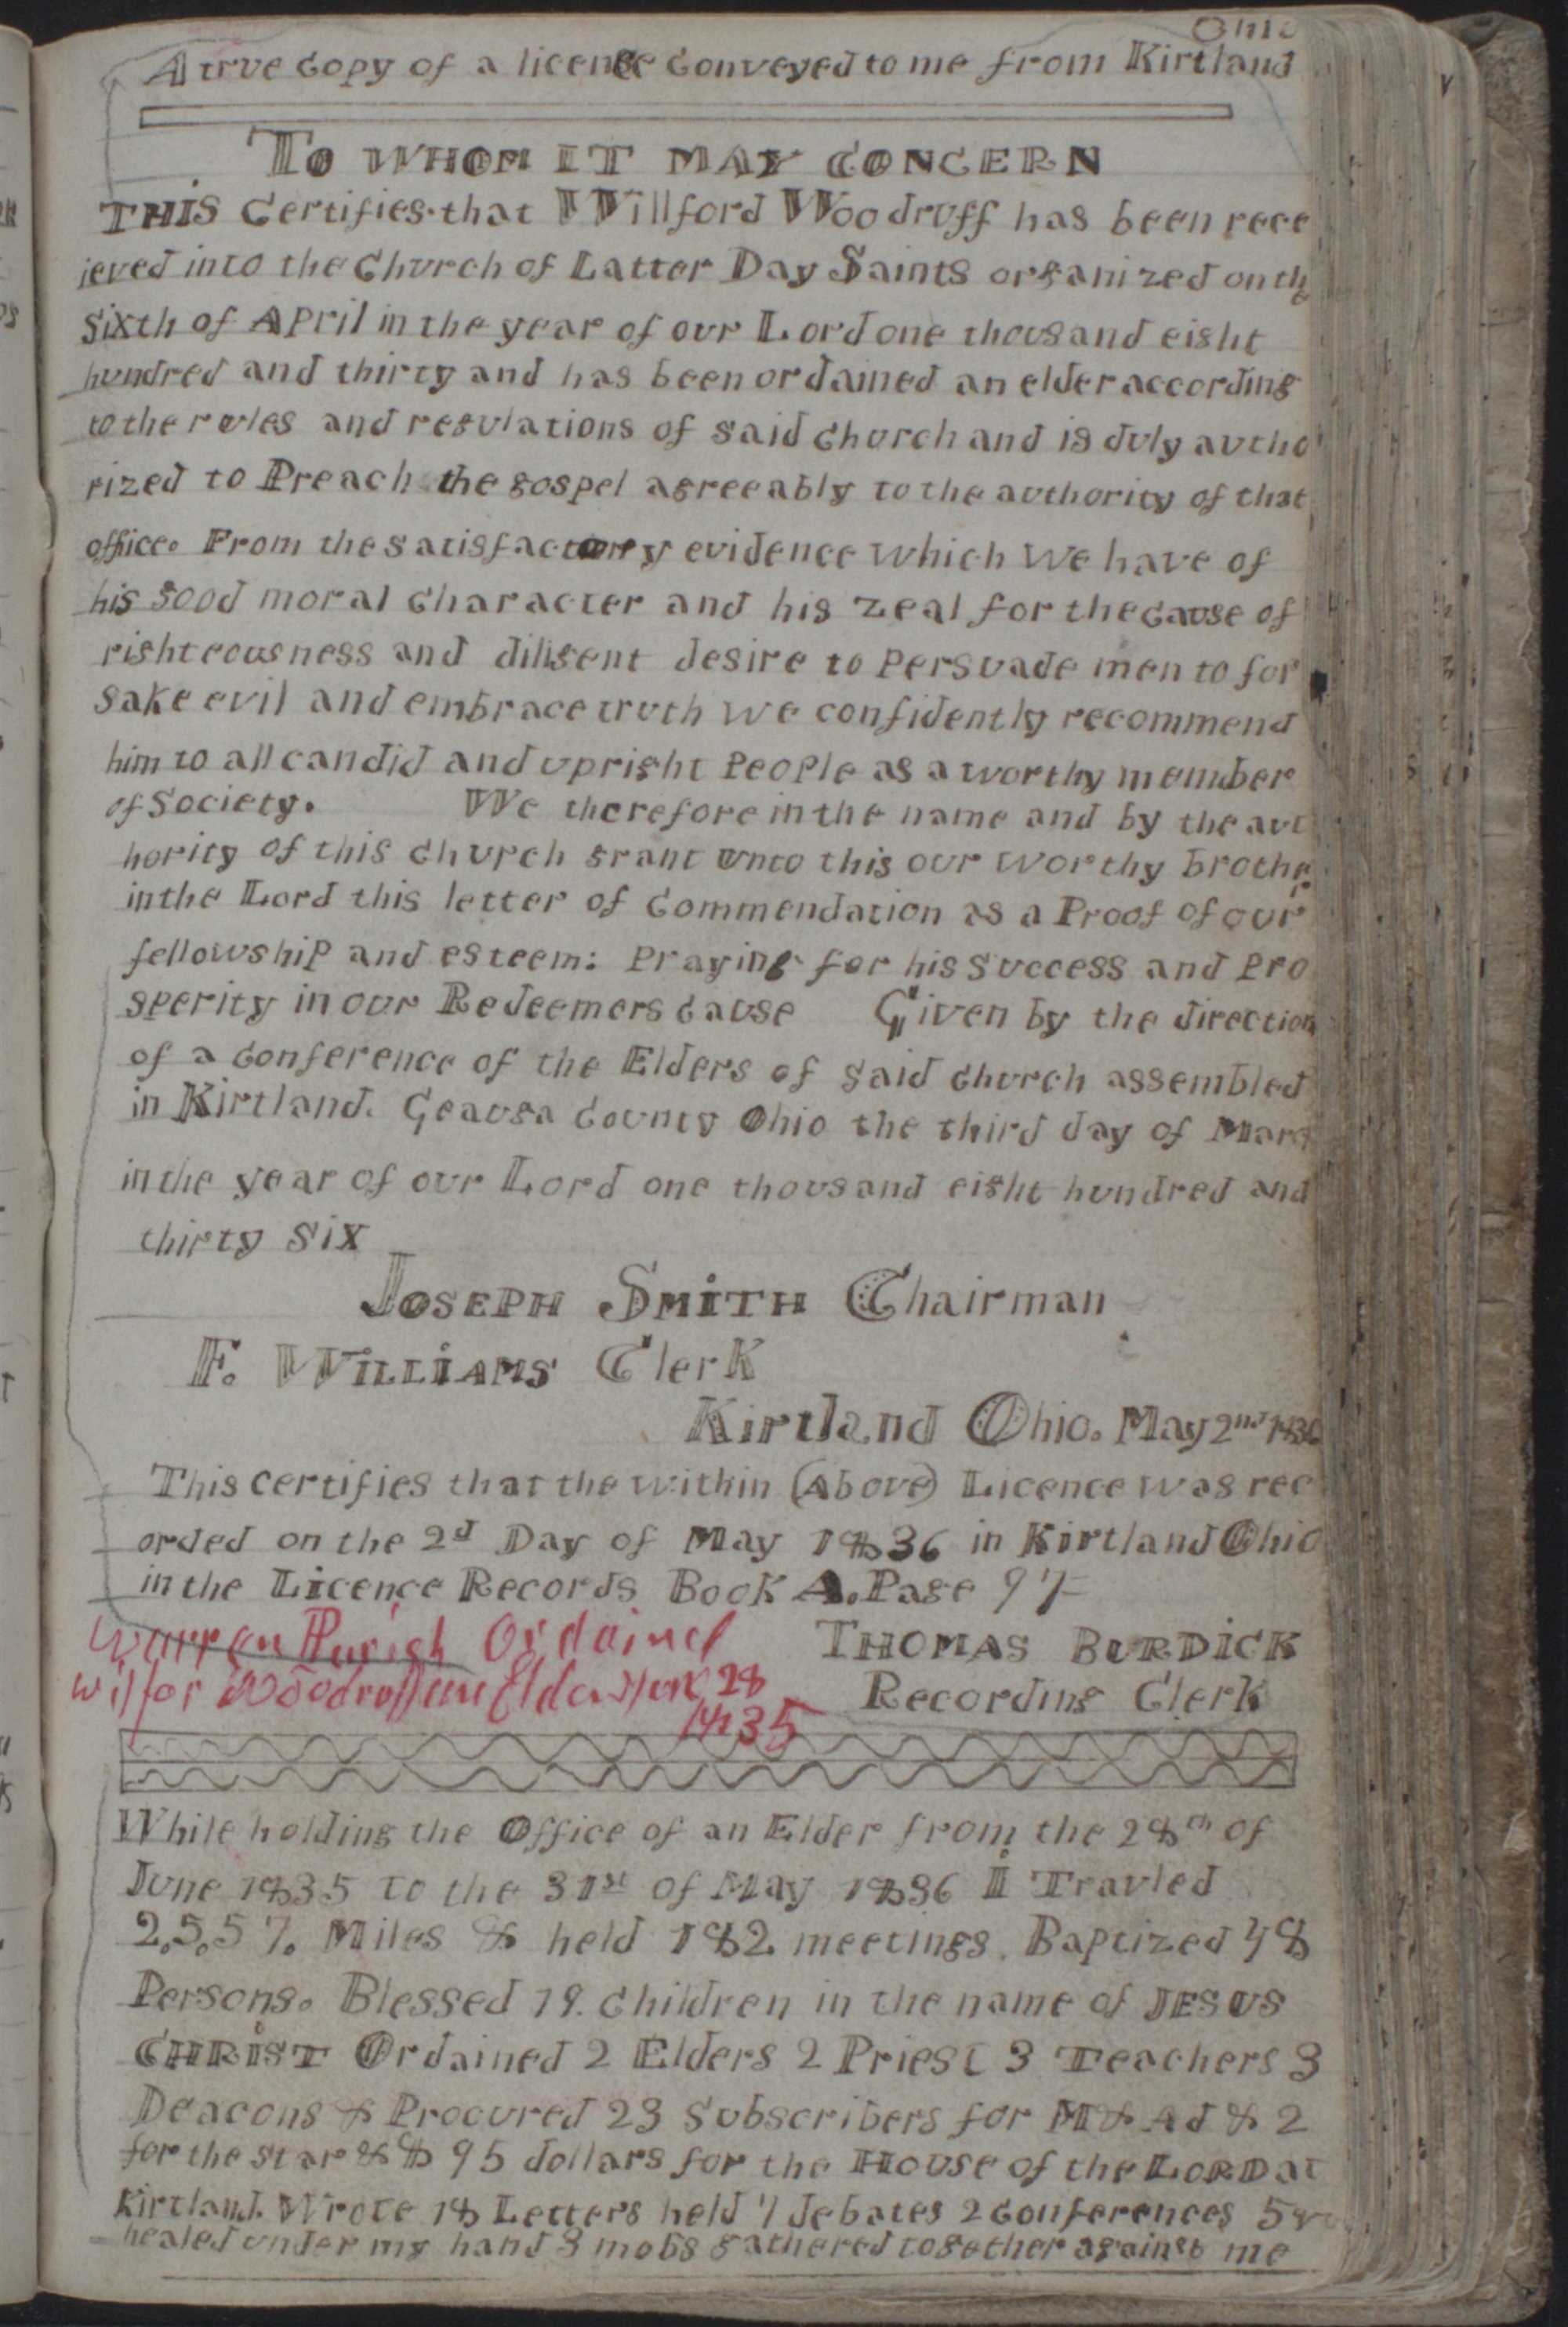 Ohio
A true Copy of a licence Conveyed to me from Kirtland
TO WHOM IT MAY CONCERN
THIS Certifies that Willford Woodruff has been rece
ieved into the Church of Latter Day Saints organized on the
Sixth of April in the year of our Lord one thousand eight
hundred and thirty and has been ordained an elder according
to the rules and regulations of said Church and is duly autho
rized to Preach the gospel agreeably to the authority of that
office. From the satisfactory evidence which we have of
his good moral Character and his zeal for the Cause of
righteousness and diligent desire to persuade men to for
sake evil and embrace truth we confidently recommend
him to all candid and upright People as a worthy member
of Society. We therefore in the name and by the aut
hority of this Church grant unto this our worthy brother
in the Lord this letter of Commendation as a Proof of our
fellowship and esteem: Praying for his Success and Pro
sperity in our Redeemers Cause Given by the direction
of a Conference of the Elders of said Church assembled
in Kirtland. Geauga County Ohio the third day of March
in the year of our Lord one thousand eight hundred and
thirty six
JOSEPH SMITH Chairman
F. WILLIAMS Clerk
Kirtland Ohio. May 2nd 1836
This certifies that the within (Above) Licence was rec
orded on the 2d Day of May 1836 in Kirtland Ohio
in the Licence Records Book A. Page
Warren Parish Ordained
THOMAS BURDICK
Wilfor Woodruff an Elder June 28
Recording Clerk
1835
While holding the Office of an Elder from the 28th of
June 1835 to the 31st of May 1836 I Travled
2,5,5 7. Miles & held 182 meetings. Baptized 48
Persons. Blessed 19. Children in the name of JESUS
CHRIST Ordained 2 Elders 2 Priest 3 Teachers 3
Deacons & Procured 23 Subscribers for M & Ad & 2
for the Star & $ 95 dollars for the House of the LORD at
Kirtland. Wrote 18 Letters held 7 debates 2 Conferences 5
healed under my hand 3 mobs gathered together against me